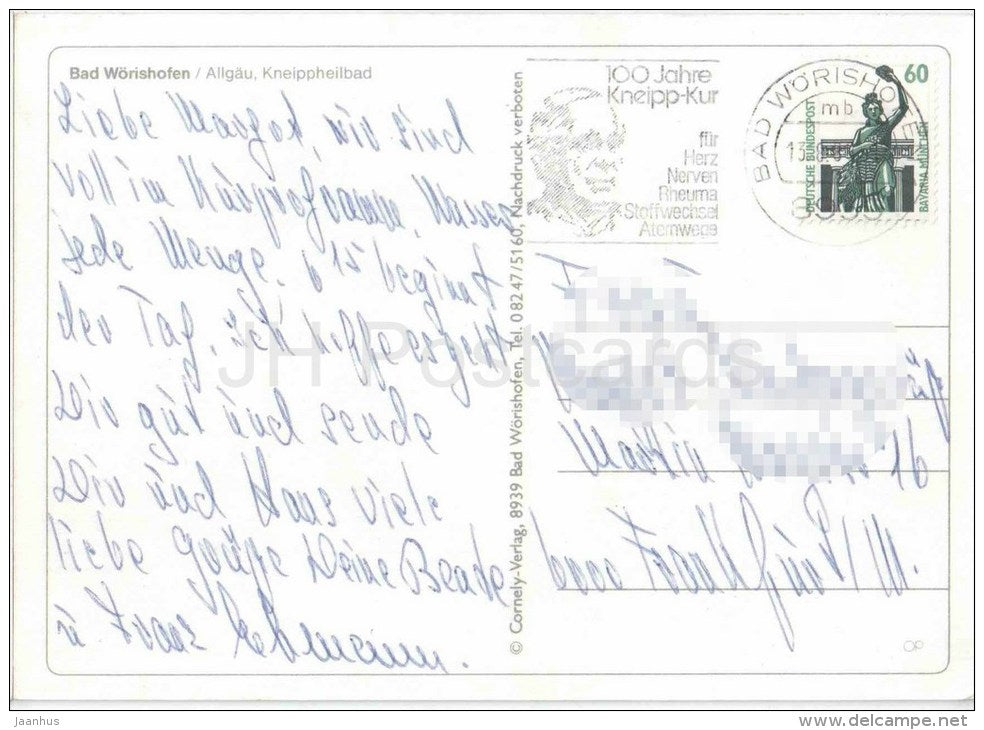 Bad Wörishofen / Allgäu, Kneippheilbad
Liebe Margot, wir sind
voll im Kurprogramm, Wasser
jede Menge. 6 15 beginnt
der Tag. Ich hoffe es geht
Dir gut und sende
Dir und Hans viele
liebe Grüße Deine Beate
u Franz Lehmann.
© Cornely-Verlag, 8939 Bad Wörishofen, Tel. 0 82 47/51 60, Nachdruck verboten
100 Jahre
Kneipp-Kur
für
Herz
Nerven
Rheuma
Stoffwechsel
Atemwege
BAD WÖRISHOFEN
mb
60
DEUTSCHE BUNDESPOST
BAVARIA MÜNCHEN
Martin 16
6000 Frankfurt/M.
JH Postcards
Jaanhus
www.delcampe.net